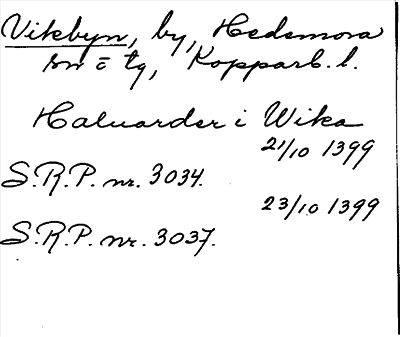 Vikbyn, by, Hedemora
sn o tg, Kopparb. l.
Haluarder i Wika
21/10 1399
S.R.P. nr. 3034.
23/10 1399
S.R.P. nr. 3037.